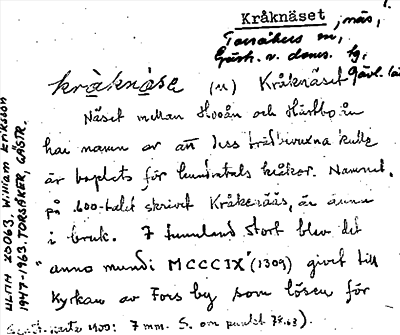 Kråknäset, näs,
Torsåkers sn,
Gästr. v. doms. tg.
Gävl. lä
kråknäse (n) Kråknäset
Näset mellan Hoån och Hästbo ån
har namn av att dess trädbevuxna kulle
är boplats för hundratals kråkor. Namnet,
på 1600-talet skrivet Kråkenääs, är ännu
i bruk. 7 tunnland stort blev det
"anno mundi MCCCIX" (1309) givet till
Kyrkan av Fors by som lösen för
karta 1900: 7 mm. S. om punkt 78.63).
ULMA 20063. William Eriksson
1947-1963. TORSÅKER, GÄSTR.